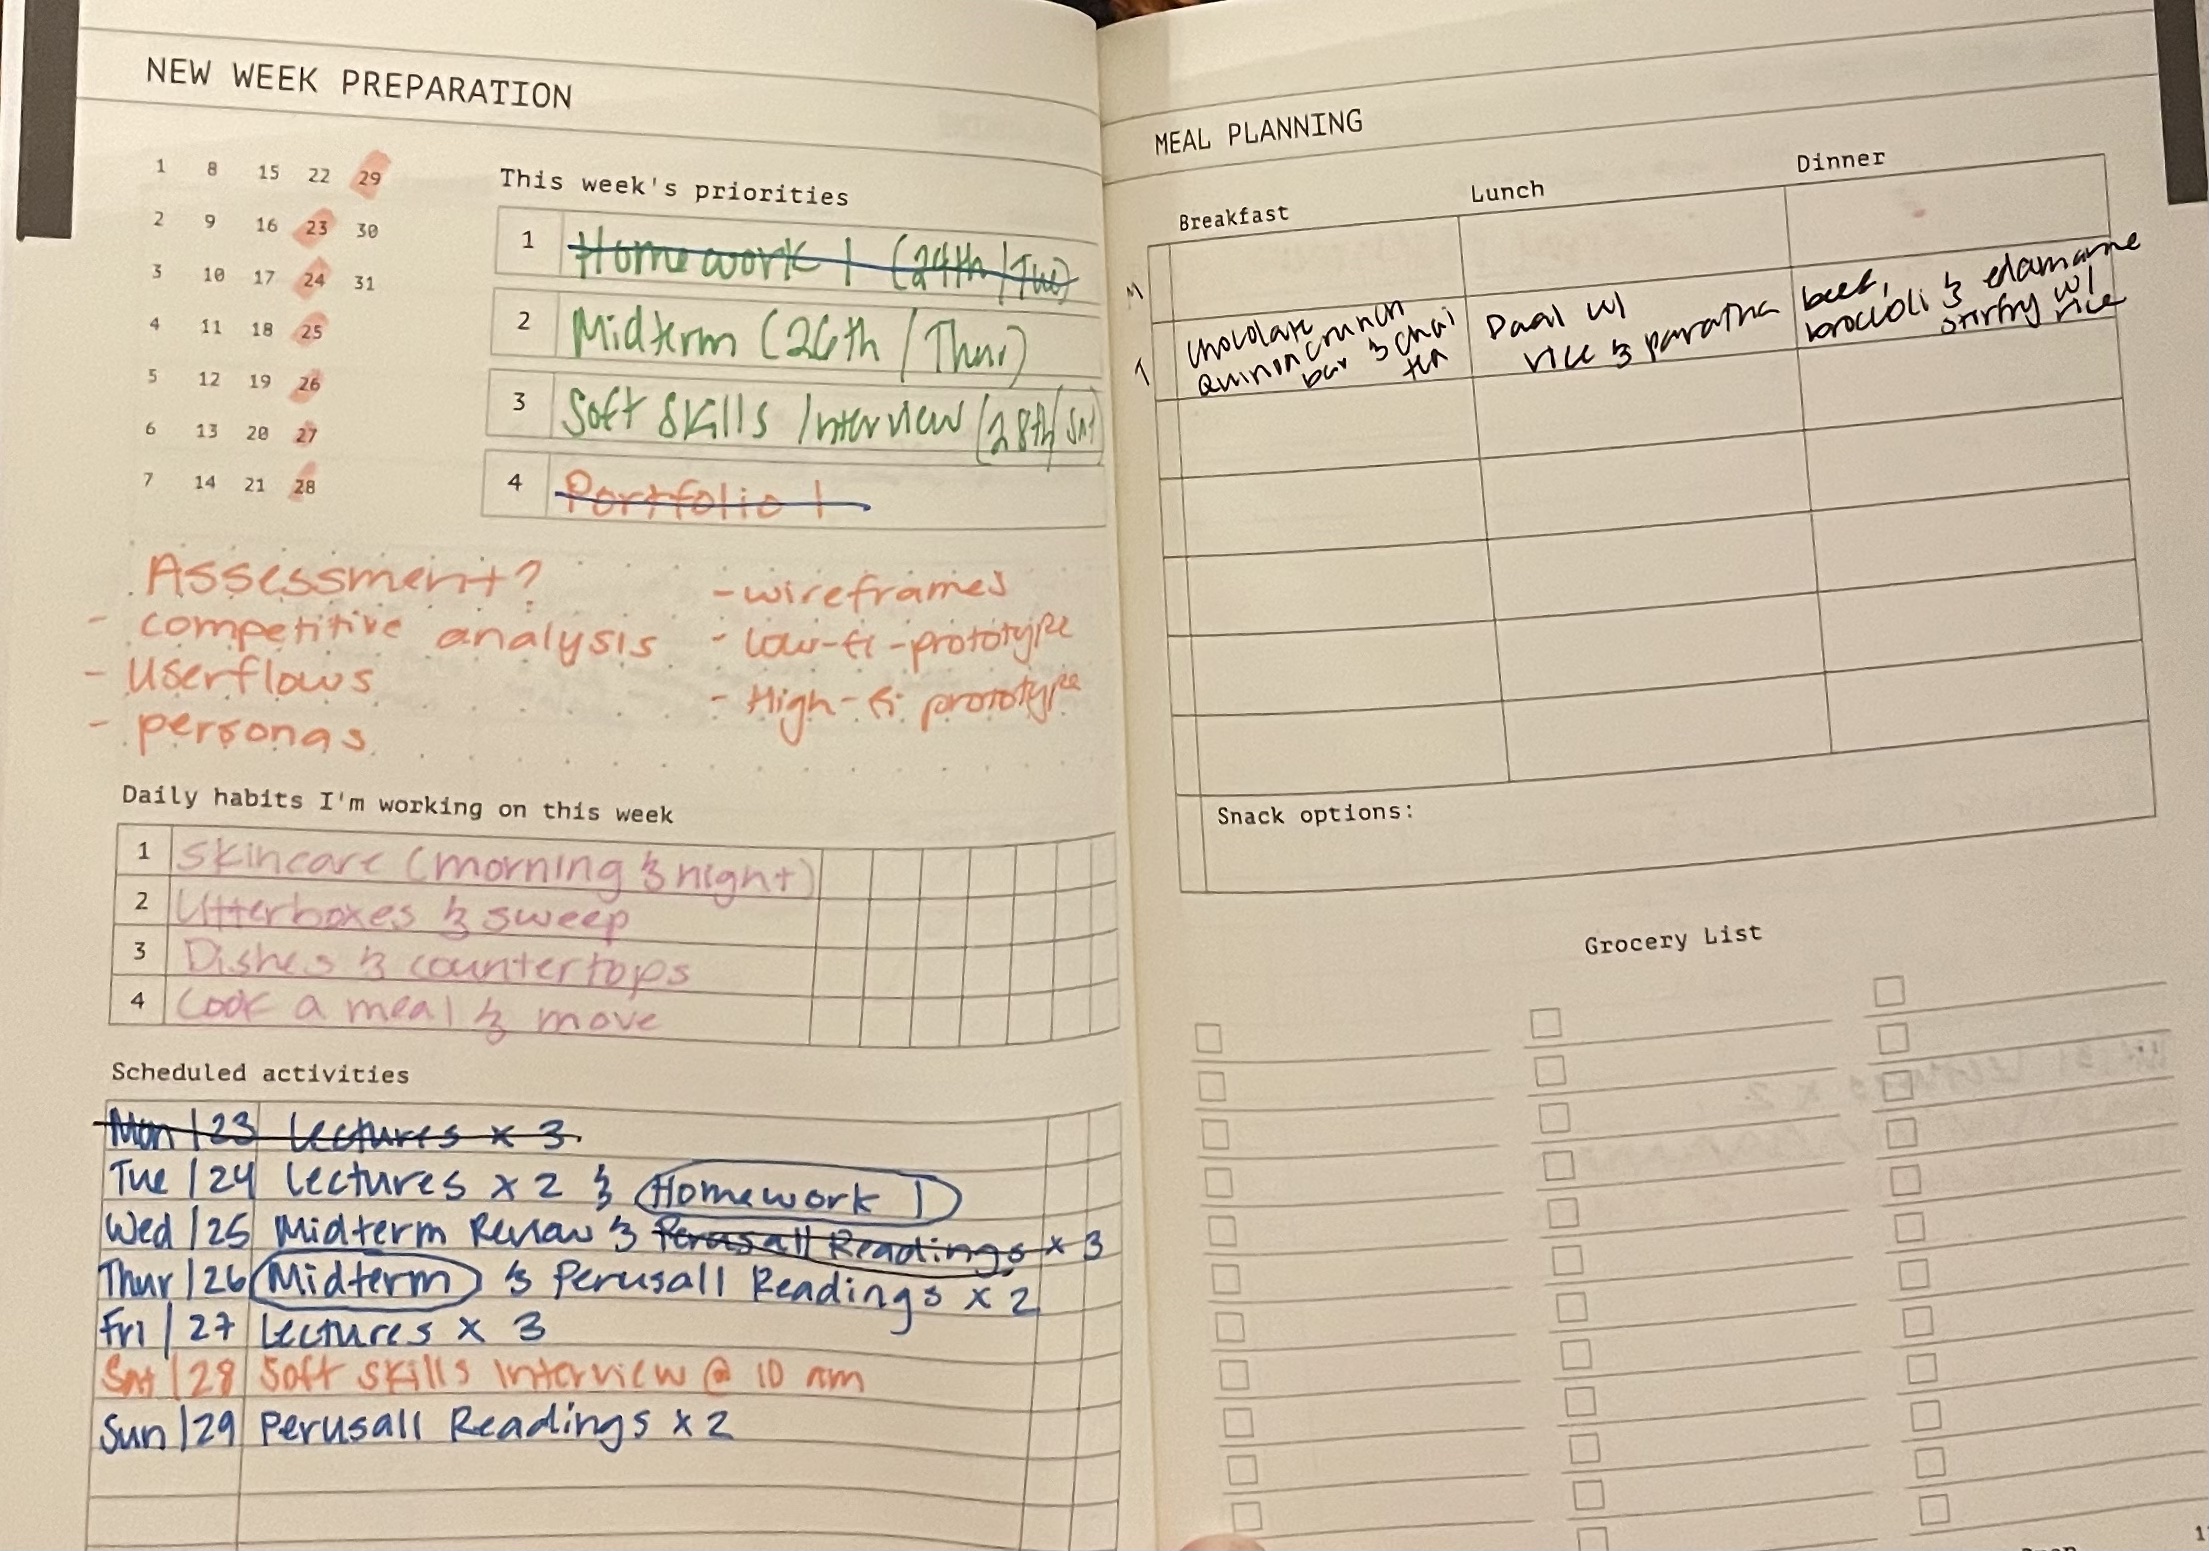 NEW WEEK PREPARATION
1 8 15 22 29
2 9 16 23 30
3 10 17 24 31
4 11 18 25
5 12 19 26
6 13 20 27
7 14 21 28
This week's priorities
1 Homework 1 (24th/Tue)
2 Midterm (26th/Thur)
3 Soft Skills Interview (28th/Sat)
4 Portfolio 1
Assessment?
- competitive analysis
- Userflows
- personas
- wireframes
- low-fi-prototype
- High-fi prototype
Daily habits I'm working on this week
1 Skincare (morning & night)
2 Litterboxes & sweep
3 Dishes & countertops
4 Cook a meal & move
Scheduled activities
Mon/23 Lectures x 3
Tue/24 Lectures x 2 & Homework 1
Wed/25 Midterm Review & Perusall Readings x 3
Thur/26 Midterm & Perusall Readings x 2
Fri/27 Lectures x 3
Sat/28 Soft Skills Interview @ 10 am
Sun/29 Perusall Readings x 2
MEAL PLANNING
Breakfast Lunch Dinner
M
T
chocolate
crunch
bar & chai
tea
Daal w/
rice & paratha
beef,
broccoli & edamame
stirfry w/
rice
Snack options:
Grocery List